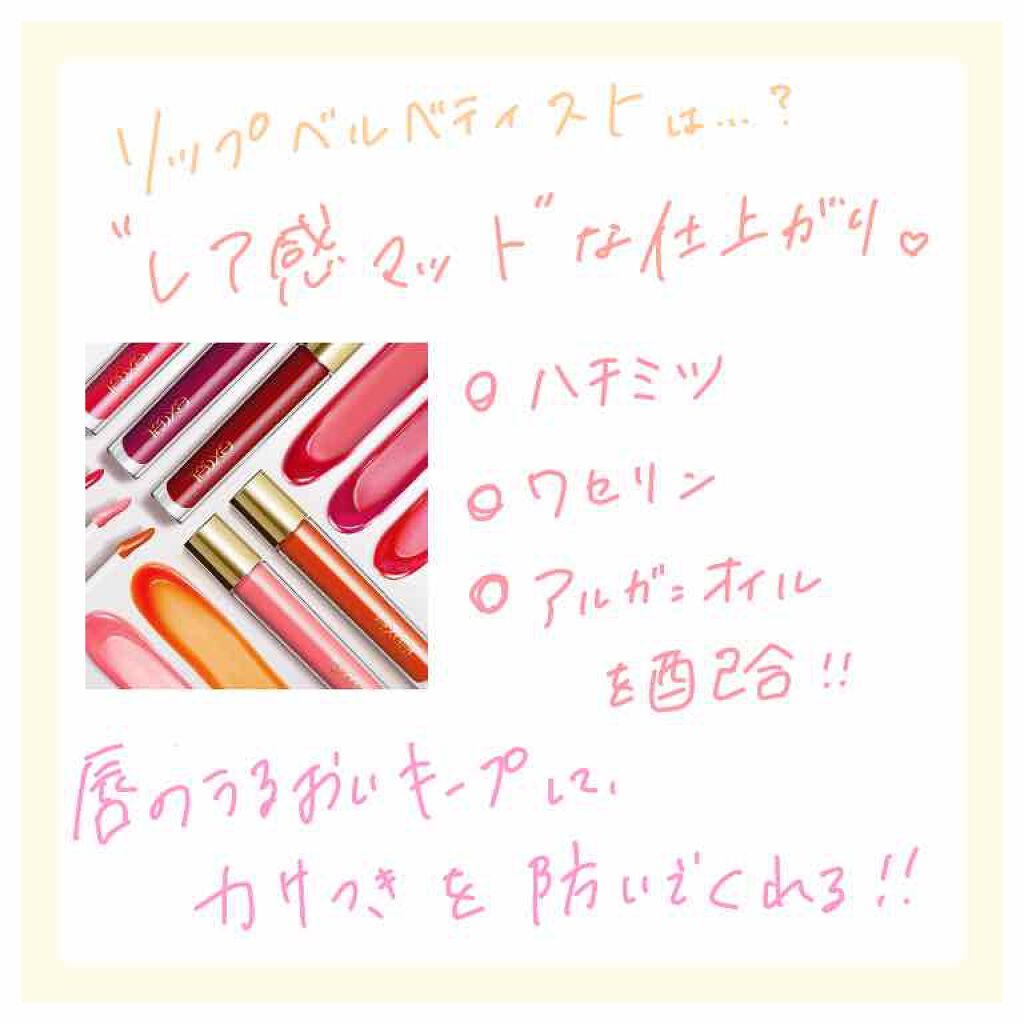 リップベルベティストは…?
"レア感マット"な仕上がり♡
○ ハチミツ
○ ワセリン
○ アルガンオイル
を配合!!
唇のうるおいキープして、
カサつきを防いでくれる!!